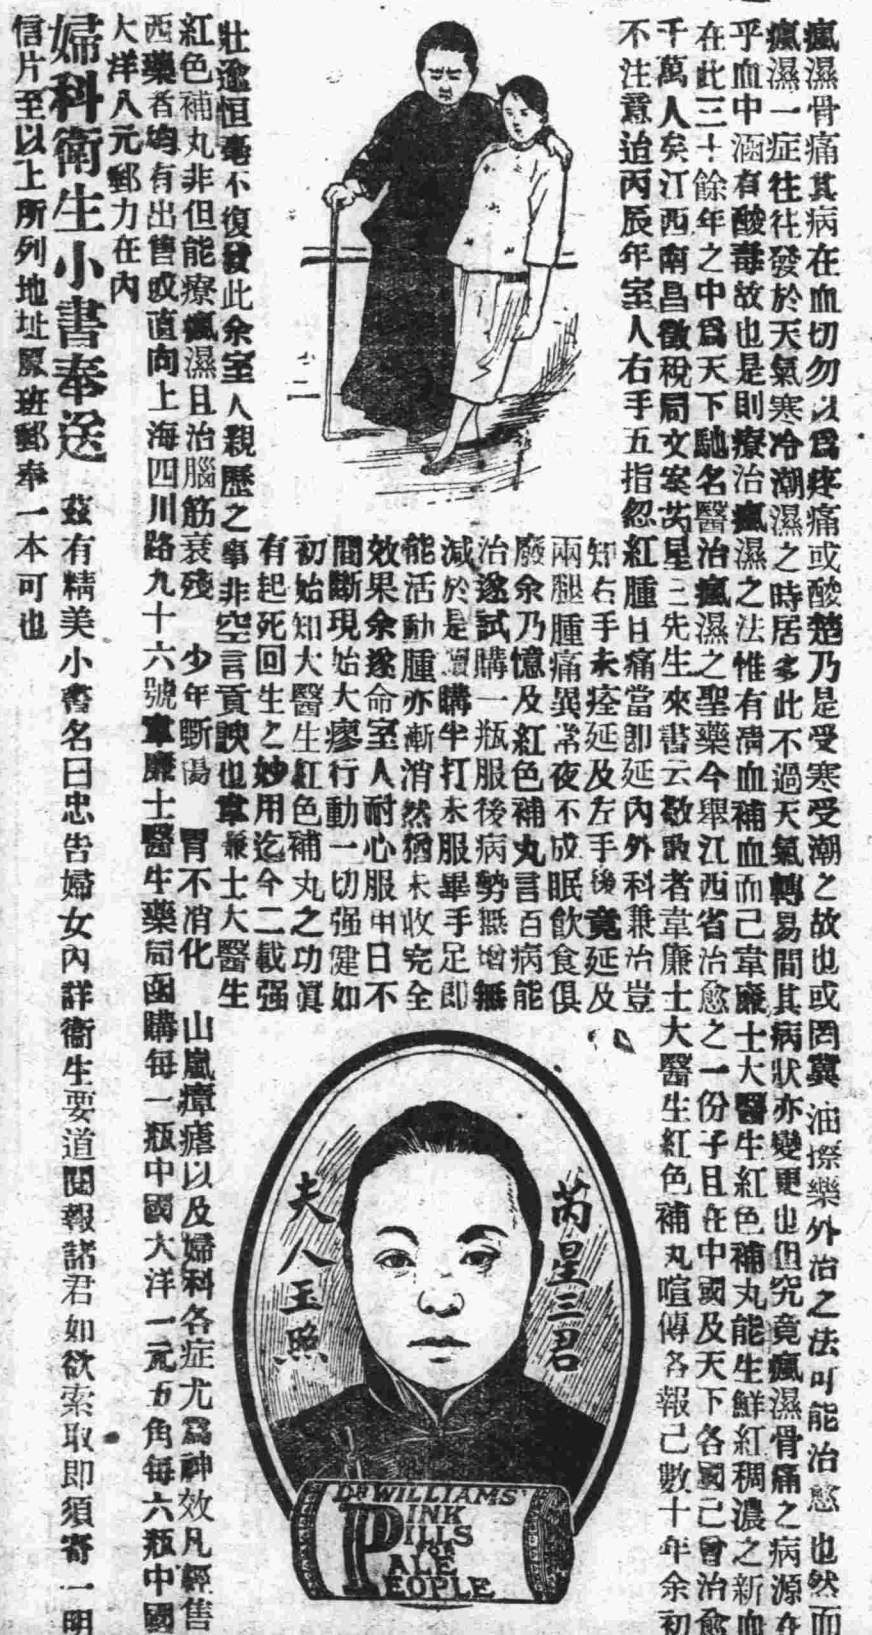 瘋濕骨痛其病在血切勿以爲疼痛或酸楚乃是受寒受潮之故也或罔冀油擦樂外治之法可能治愈也然而
瘋濕一症往往發於天氣寒冷潮濕之時居多此不過天氣轉易間其病狀亦變更也但究竟瘋濕骨痛之病源在
乎血中涵有酸毒故也是則療治瘋濕之法惟有清血補血而已韋廉士大醫生紅色補丸能生鮮紅稠濃之新血
在此三十餘年之中爲天下馳名醫治瘋濕之聖藥今舉江西省治愈之一份子且在中國及天下各國已曾治愈
千萬人矣江西南昌徵稅局文案芮星三先生來書云敬啟者韋廉士大醫生紅色補丸喧傳各報已數十年余初
不注意迨丙辰年室人右手五指忽紅腫日痛當卽延內外科兼治豈
知右手未痊延及左手後竟延及
兩腿腫痛異常夜不成眠飲食俱
廢余乃憶及紅色補丸言百病能
治遂試購一瓶服後病勢無增無
減於是續購半打未服畢手足即
能活動腫亦漸消然猶未收完全
效果余遂命室人耐心服用日不
間斷現始大瘳行動一切强健如
初始知大醫生紅色補丸之功眞
有起死回生之妙用迄今二載强
壯逾恒毫不復發此余室人親歷之事非空言貢諛也韋廉士大醫生
紅色補丸非但能療瘋濕且治腦筋衰殘 少年斲傷 胃不消化 山嵐瘴瘧以及婦科各症尤爲神效凡經售
西藥者均有出售或直向上海四川路九十六號韋廉士醫生藥局函購每一瓶中國大洋一元五角每六瓶中國
大洋八元郵力在內
婦科衛生小書奉送 茲有精美小書名曰忠告婦女內詳衛生要道閱報諸君如欲索取即須寄一明
信片至以上所列地址原班郵奉一本可也
芮星三君
夫人玉照
DR WILLIAMS'
PINK
PILLS
FOR
PALE
PEOPLE